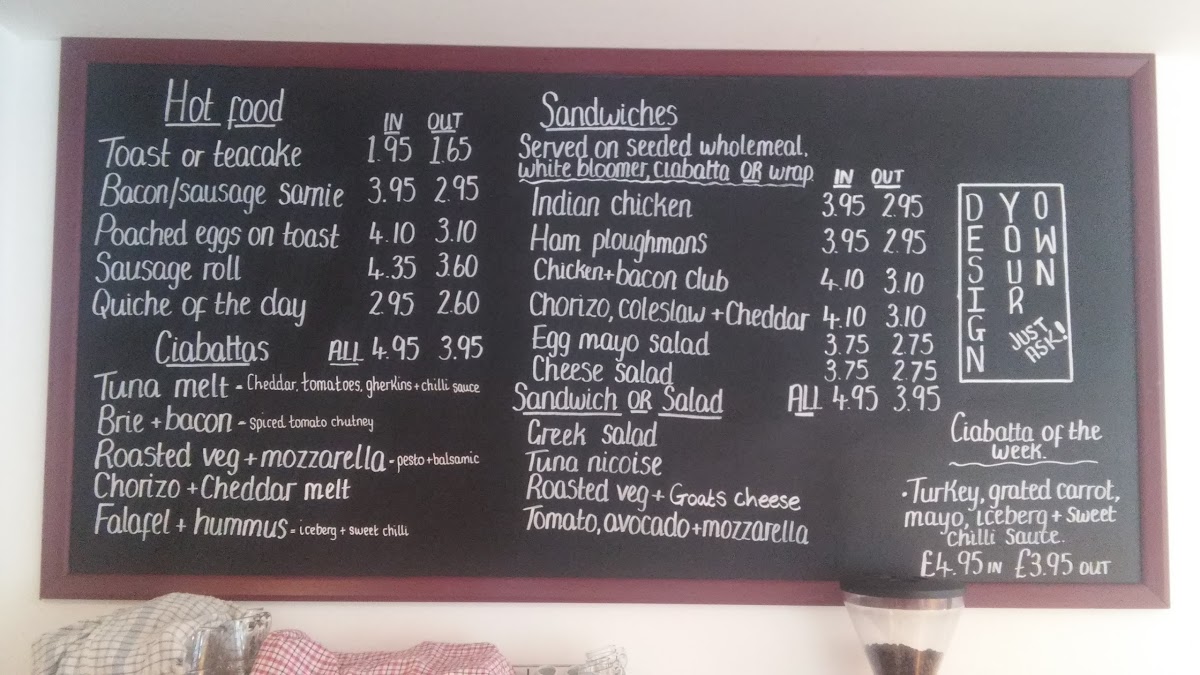 Hot food
IN OUT
Toast or teacake 1.95 1.65
Bacon/sausage sarnie 3.95 2.95
Poached eggs on toast 4.10 3.10
Sausage roll 4.35 3.60
Quiche of the day 2.95 2.60
Ciabattas ALL 4.95 3.95
Tuna melt - Cheddar, tomatoes, gherkins + chilli sauce
Brie + bacon - spiced tomato chutney
Roasted veg + mozzarella - pesto + balsamic
Chorizo + Cheddar melt
Falafel + hummus - iceberg + sweet chilli
Sandwiches
Served on seeded wholemeal,
white bloomer, ciabatta OR wrap
IN OUT
Indian chicken 3.95 2.95
Ham ploughmans 3.95 2.95
Chicken + bacon club 4.10 3.10
Chorizo, coleslaw + Cheddar 4.10 3.10
Egg mayo salad 3.75 2.75
Cheese salad 3.75 2.75
Sandwich OR Salad ALL 4.95 3.95
Greek salad
Tuna nicoise
Roasted veg + Goats cheese
Tomato, avocado + mozzarella
DESIGN
YOUR
OWN
JUST
ASK!
Ciabatta of the
week.
· Turkey, grated carrot,
mayo, iceberg + sweet
chilli saute.
£4.95 IN £3.95 OUT